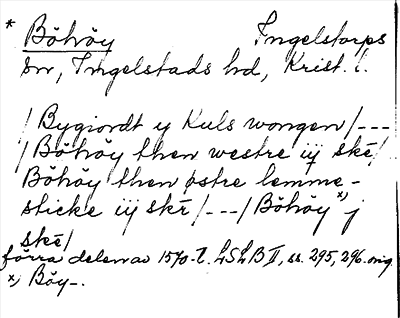 * Böhöy Ingelstorps
sn, Ingelstads hd, Krist. l.
/Bygiordt y Kuls wongen/---
/Böhöy then westre iij ske/
Böhöy then østre lemme-
sticke iij skr/---/Böhöy x) j
ske/
förra delen av 1570-t. LSLB II, ss. 295, 296. orig
x) Böy-.